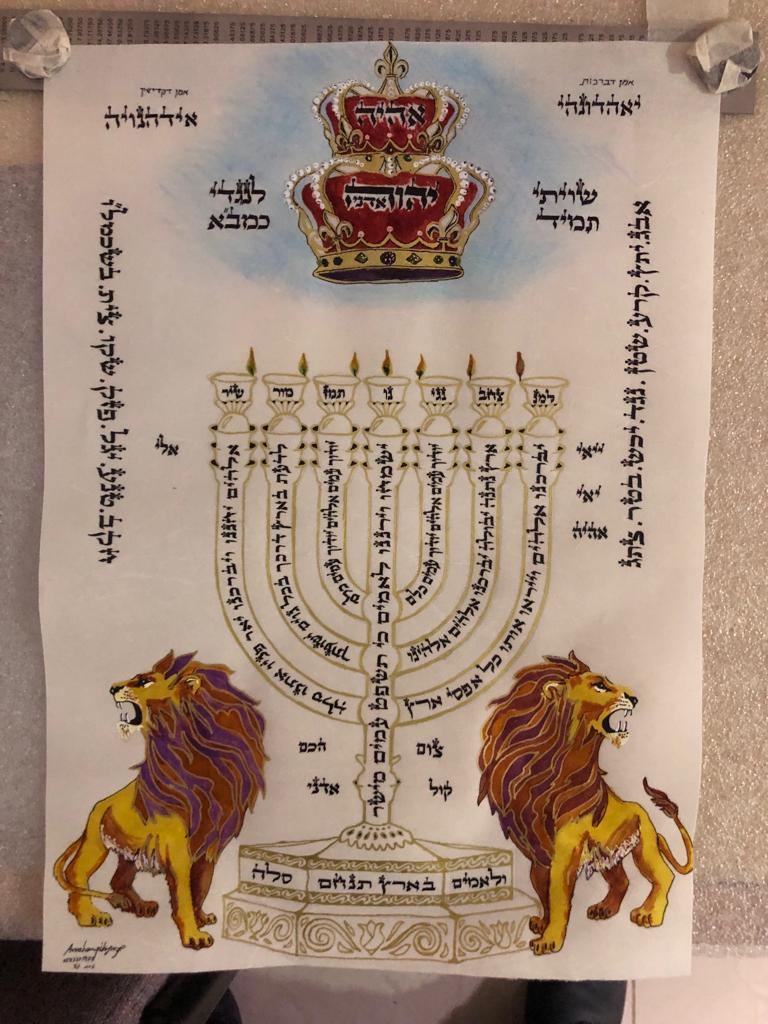 אמן דברכות
יאהדונהי
אמן דקדישין
אידהנויה
אהיה
יהוה
אדני
שויתי
לנגדי
תמיד
כמב"א
אבג.יתץ.קרע.שטן.נגד.יכש.בטר.צתג
למנ צחב נגי נו תמז מור שיר
יברכנו אלהים וייראו אותו כל אפסי ארץ
ארץ נתנה יבולה יברכנו אלהים אלהינו
יודוך עמים אלהים יודוך עמים כלם
ישמחו וירננו לאמים כי תשפט עמים מישר
יודוך עמים אלהים יודוך עמים כלם
לדעת בארץ דרכך בכל גוים ישועתך
אלהים יחננו ויברכנו יאר פניו אתנו סלה
אלי
צום
הכם
קול
אדני
ולאמים בארץ תנחם סלה